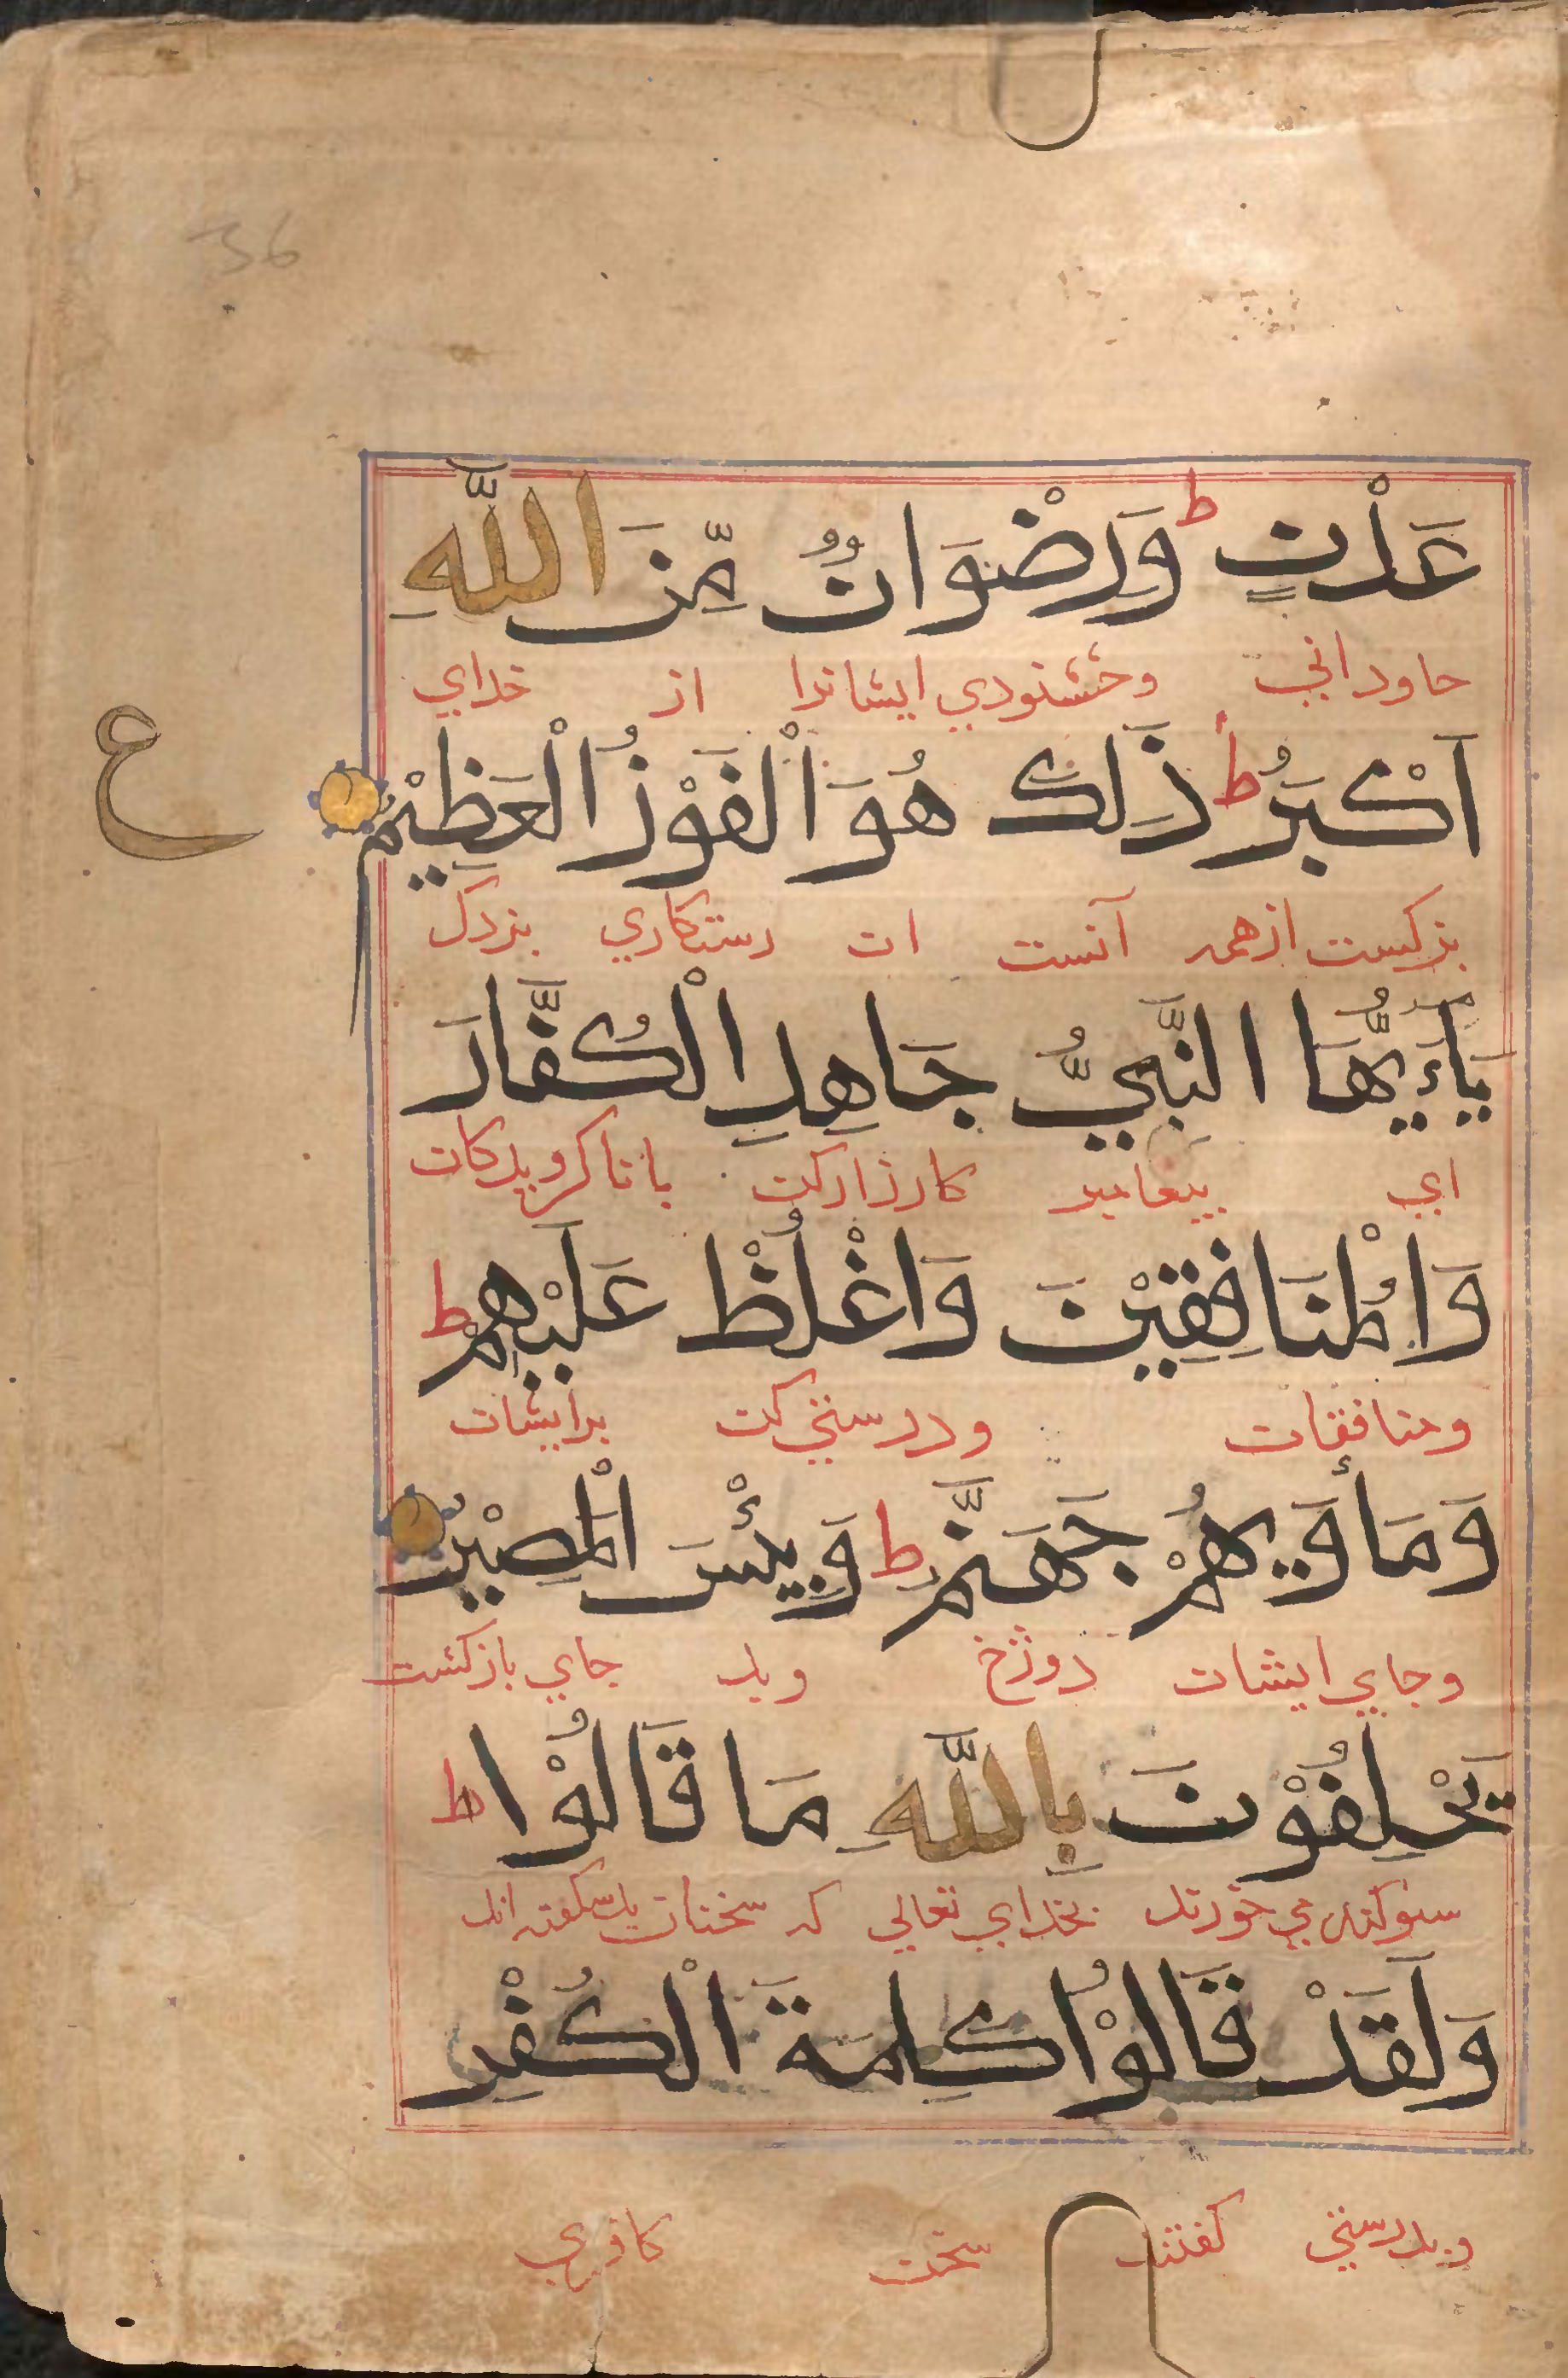 36
عَدْنٍ ط وَرِضْوَانٌ مِّنَ اللَّهِ
جاوداني وخشنودي ايشانرا از خداي
اَكْبَرُ ط ذَلِكَ هُوَ الْفَوْزُ الْعَظِيْمُ
ع
بزركست ازهمه آنست ان رستكاري بزرك
يَاءَيُّهَا النَّبِيُّ جَاهِدِ الْكُفَّارَ
اي پيغامبر كارزاركن با ناكرويدكان
وَالْمُنَافِقِيْنَ وَاغْلُظْ عَلَيْهِمْ ط
ومنافقان ودرستي كن برايشان
وَمَأْوَيهُمْ جَهَنَّمُ ط وَبِئْسَ الْمَصِيْرُ
وجاي ايشان دوزخ وبد جاي بازكشت
يَحْلِفُوْنَ بِاللَّهِ مَا قَالُوْا ط
سوكند مي خورند بخداي تعالي كه سخنان بد نكفته اند
وَلَقَدْ قَالُوْا كَلِمَةَ الْكُفْرِ
وبدرستي كفتند سخن كافري